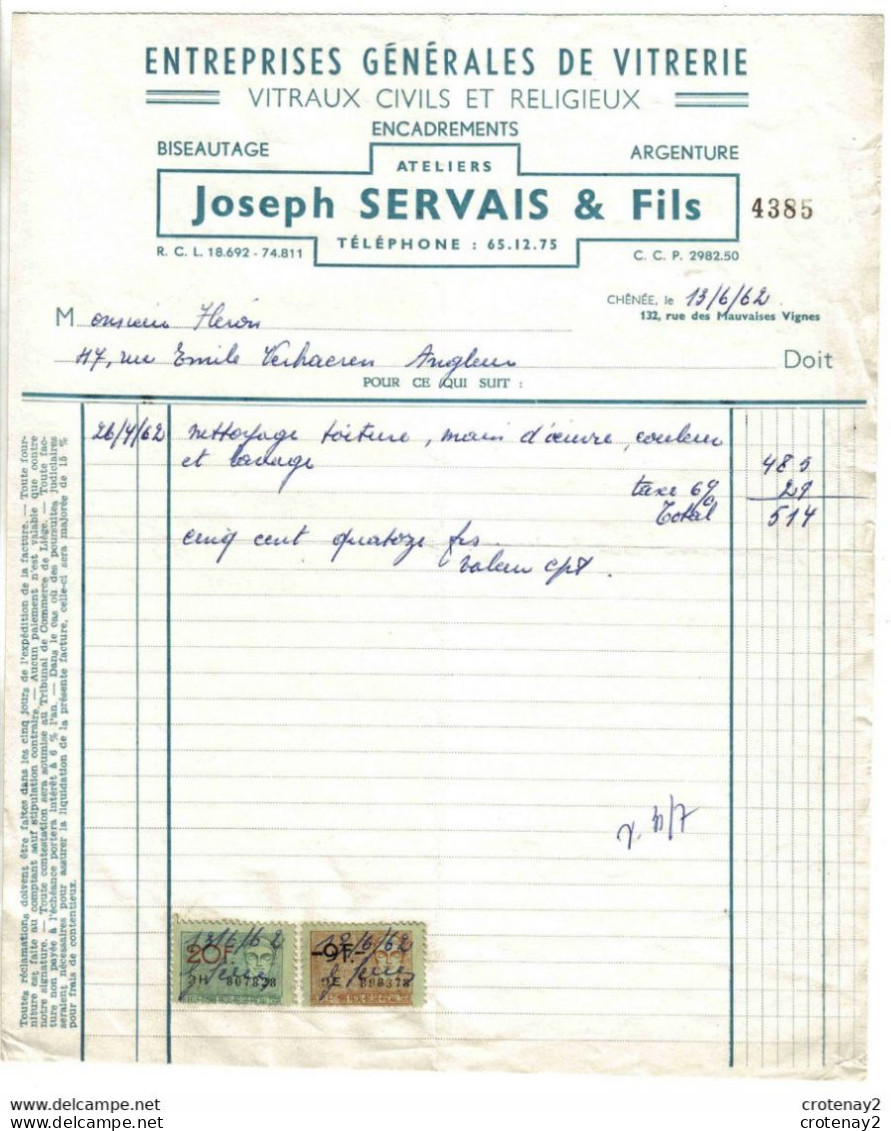 ENTREPRISES GÉNÉRALES DE VITRERIE
VITRAUX CIVILS ET RELIGIEUX
ENCADREMENTS
BISEAUTAGE
ARGENTURE
ATELIERS
Joseph SERVAIS & Fils
4385
TÉLÉPHONE : 65.12.75
R. C. L. 18.692 - 74.811
C. C. P. 2982.50
CHÊNÉE, le 13/6/62
132, rue des Mauvaises Vignes
Monsieur Héron
47, rue Emile Verhaeren Angleur Doit
POUR CE QUI SUIT :
26/4/62 nettoyage toiture, main d'œuvre, couleur
et lavage 485
taxe 6% 29
Total 514
cinq cent quatoze frs
valeur cpt.
Toutes réclamations doivent être faites dans les cinq jours de l'expédition de la facture. — Toute four-
niture est faite au comptant sauf stipulation contraire. — Aucun paiement n'est valable que contre
notre signature. — Toute contestation sera soumise au Tribunal de Commerce de Liége. — Toute fac-
ture non payée à l'échéance portera intérêt à 6 % l'an. — Dans le cas où des poursuites judiciaires
seraient nécessaires pour assurer la liquidation de la présente facture, celle-ci sera majorée de 15 %
pour frais de contentieux.
13/6/62
20F.
807828
-9F.-
crotenay2
crotenay2